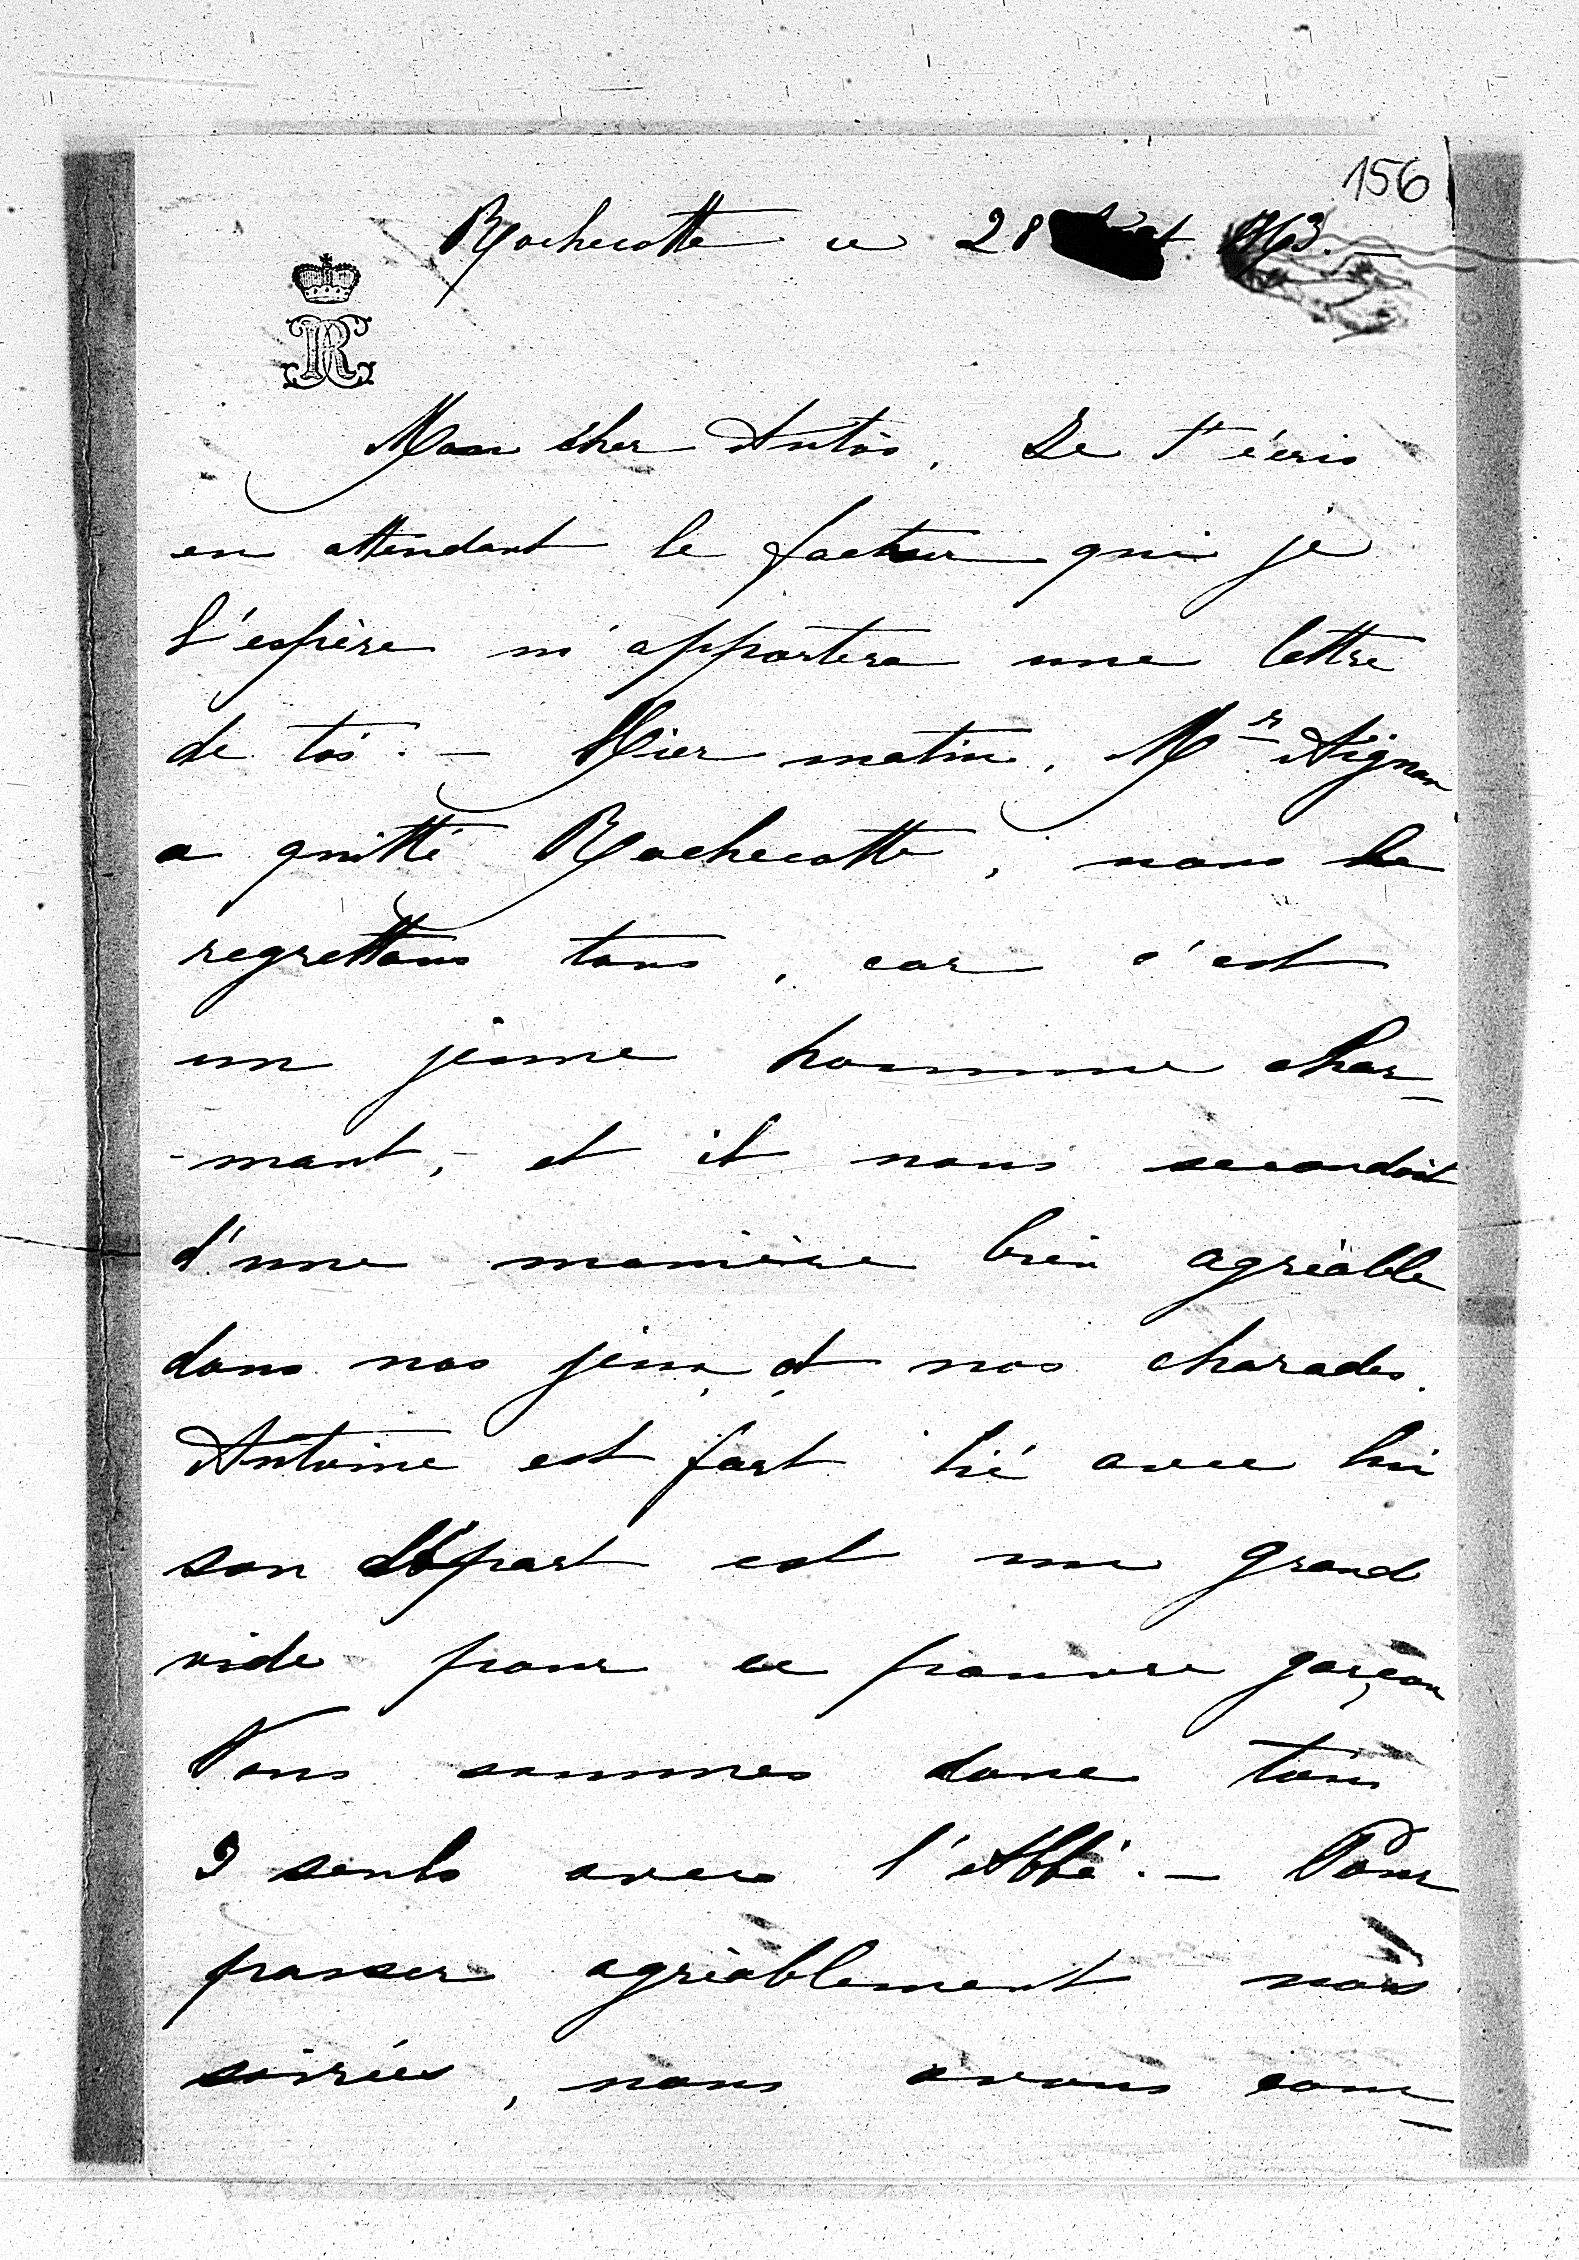 156
Rochecotte ce 28 1863. —
R
Mon cher Antoś, Je t'écris
en attendant le facteur qui je
l'espère m'apportera une lettre
de toi. — Hier matin, Mr Aignan
a quitté Rochecotte, nous le
regrettons tous, car c'est
un jeune homme char-
-mant, et il nous secondait
d'une manière bien agréable
dans nos jeux et nos charades.
Antoine est fort lié avec lui
son départ est un grand
vide pour ce pauvre garçon
Nous sommes donc tous
3 seuls avec l'Abbé. — Pour
passer agréablement nos
soirées, nous avons com-